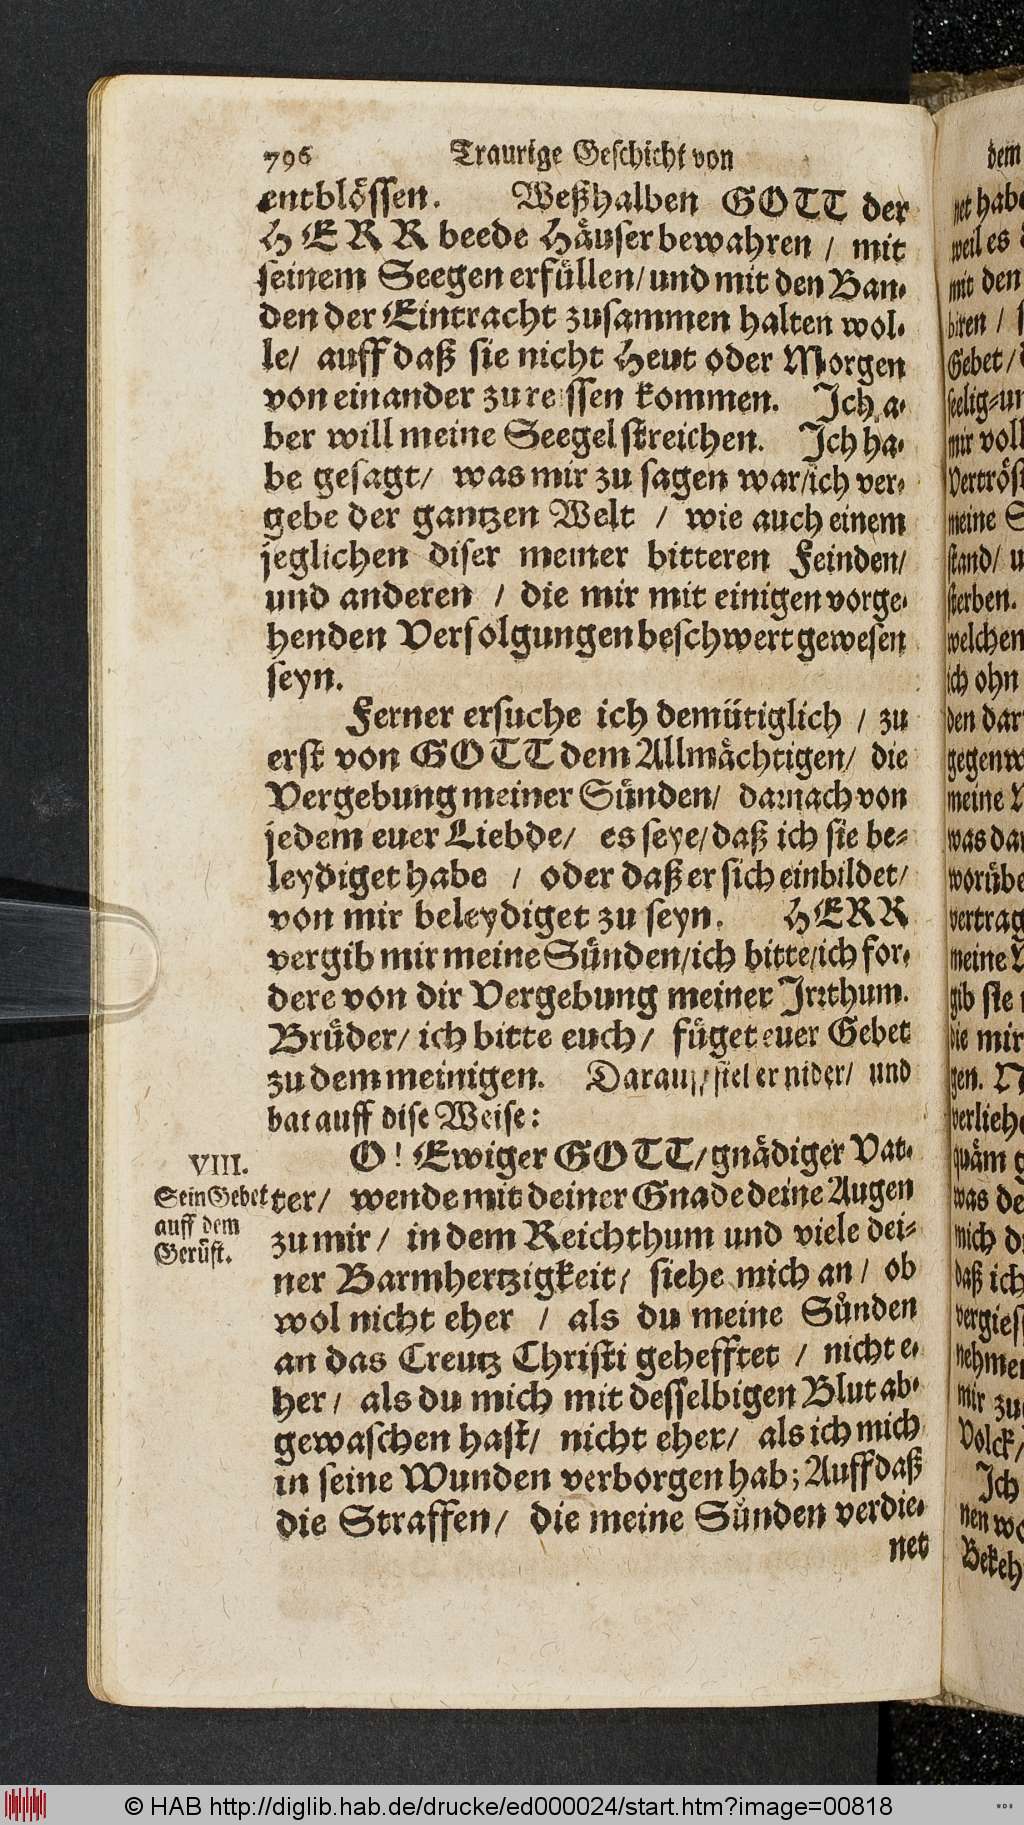 796 Traurige Geschicht von
entblössen. Weßhalben GOTT der
HERR beede Häuser bewahren / mit
seinem Seegen erfüllen / und mit den Ban-
den der Eintracht zusammen halten wol-
le / auff daß sie nicht Heut oder Morgen
von einander zureissen kommen. Ich a-
ber will meine Seegel streichen. Ich ha-
be gesagt / was mir zu sagen war / ich ver-
gebe der gantzen Welt / wie auch einem
jeglichen diser meiner bitteren Feinden /
und anderen / die mir mit einigen vorge-
henden Verfolgungen beschwert gewesen
seyn.
Ferner ersuche ich demütiglich / zu
erst von GOTT dem Allmächtigen / die
Vergebung meiner Sünden / darnach von
jedem euer Liebde / es seye / daß ich sie be-
leydiget habe / oder daß er sich einbildet /
von mir beleydiget zu seyn. HERR
vergib mir meine Sünden / ich bitte / ich for-
dere von dir Vergebung meiner Irrthum.
Brüder / ich bitte euch / füget euer Gebet
zu dem meinigen. Darauff fiel er nider / und
bat auff dise Weise:
VIII.
Sein Gebet
auff dem
Gerüst.
O! Ewiger GOTT / gnädiger Vat-
ter / wende mit deiner Gnade deine Augen
zu mir / in dem Reichthum und viele dei-
ner Barmhertzigkeit / siehe mich an / ob
wol nicht eher / als du meine Sünden
an das Creutz Christi gehefftet / nicht e-
her / als du mich mit desselbigen Blut ab-
gewaschen hast / nicht eher / als ich mich
in seine Wunden verborgen hab; Auff daß
die Straffen / die meine Sünden verdie-
net
dem
net habe
weil es
mit den
Gebet /
mir voll
Vertröst
meine S
stand / u
sterben.
welchen
ich ohn
den dar
gegenw
meine
was dar
worübe
vertrag
meine
gib sie
die mir
gen.
verliehe
was de
mich d
daß ich
vergies
nehmen
mir zu
Volck /
Ich
nen wo
Bekeh
© HAB http://diglib.hab.de/drucke/ed000024/start.htm?image=00818